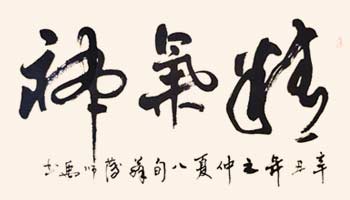 精氣神
辛丑年之仲夏八旬